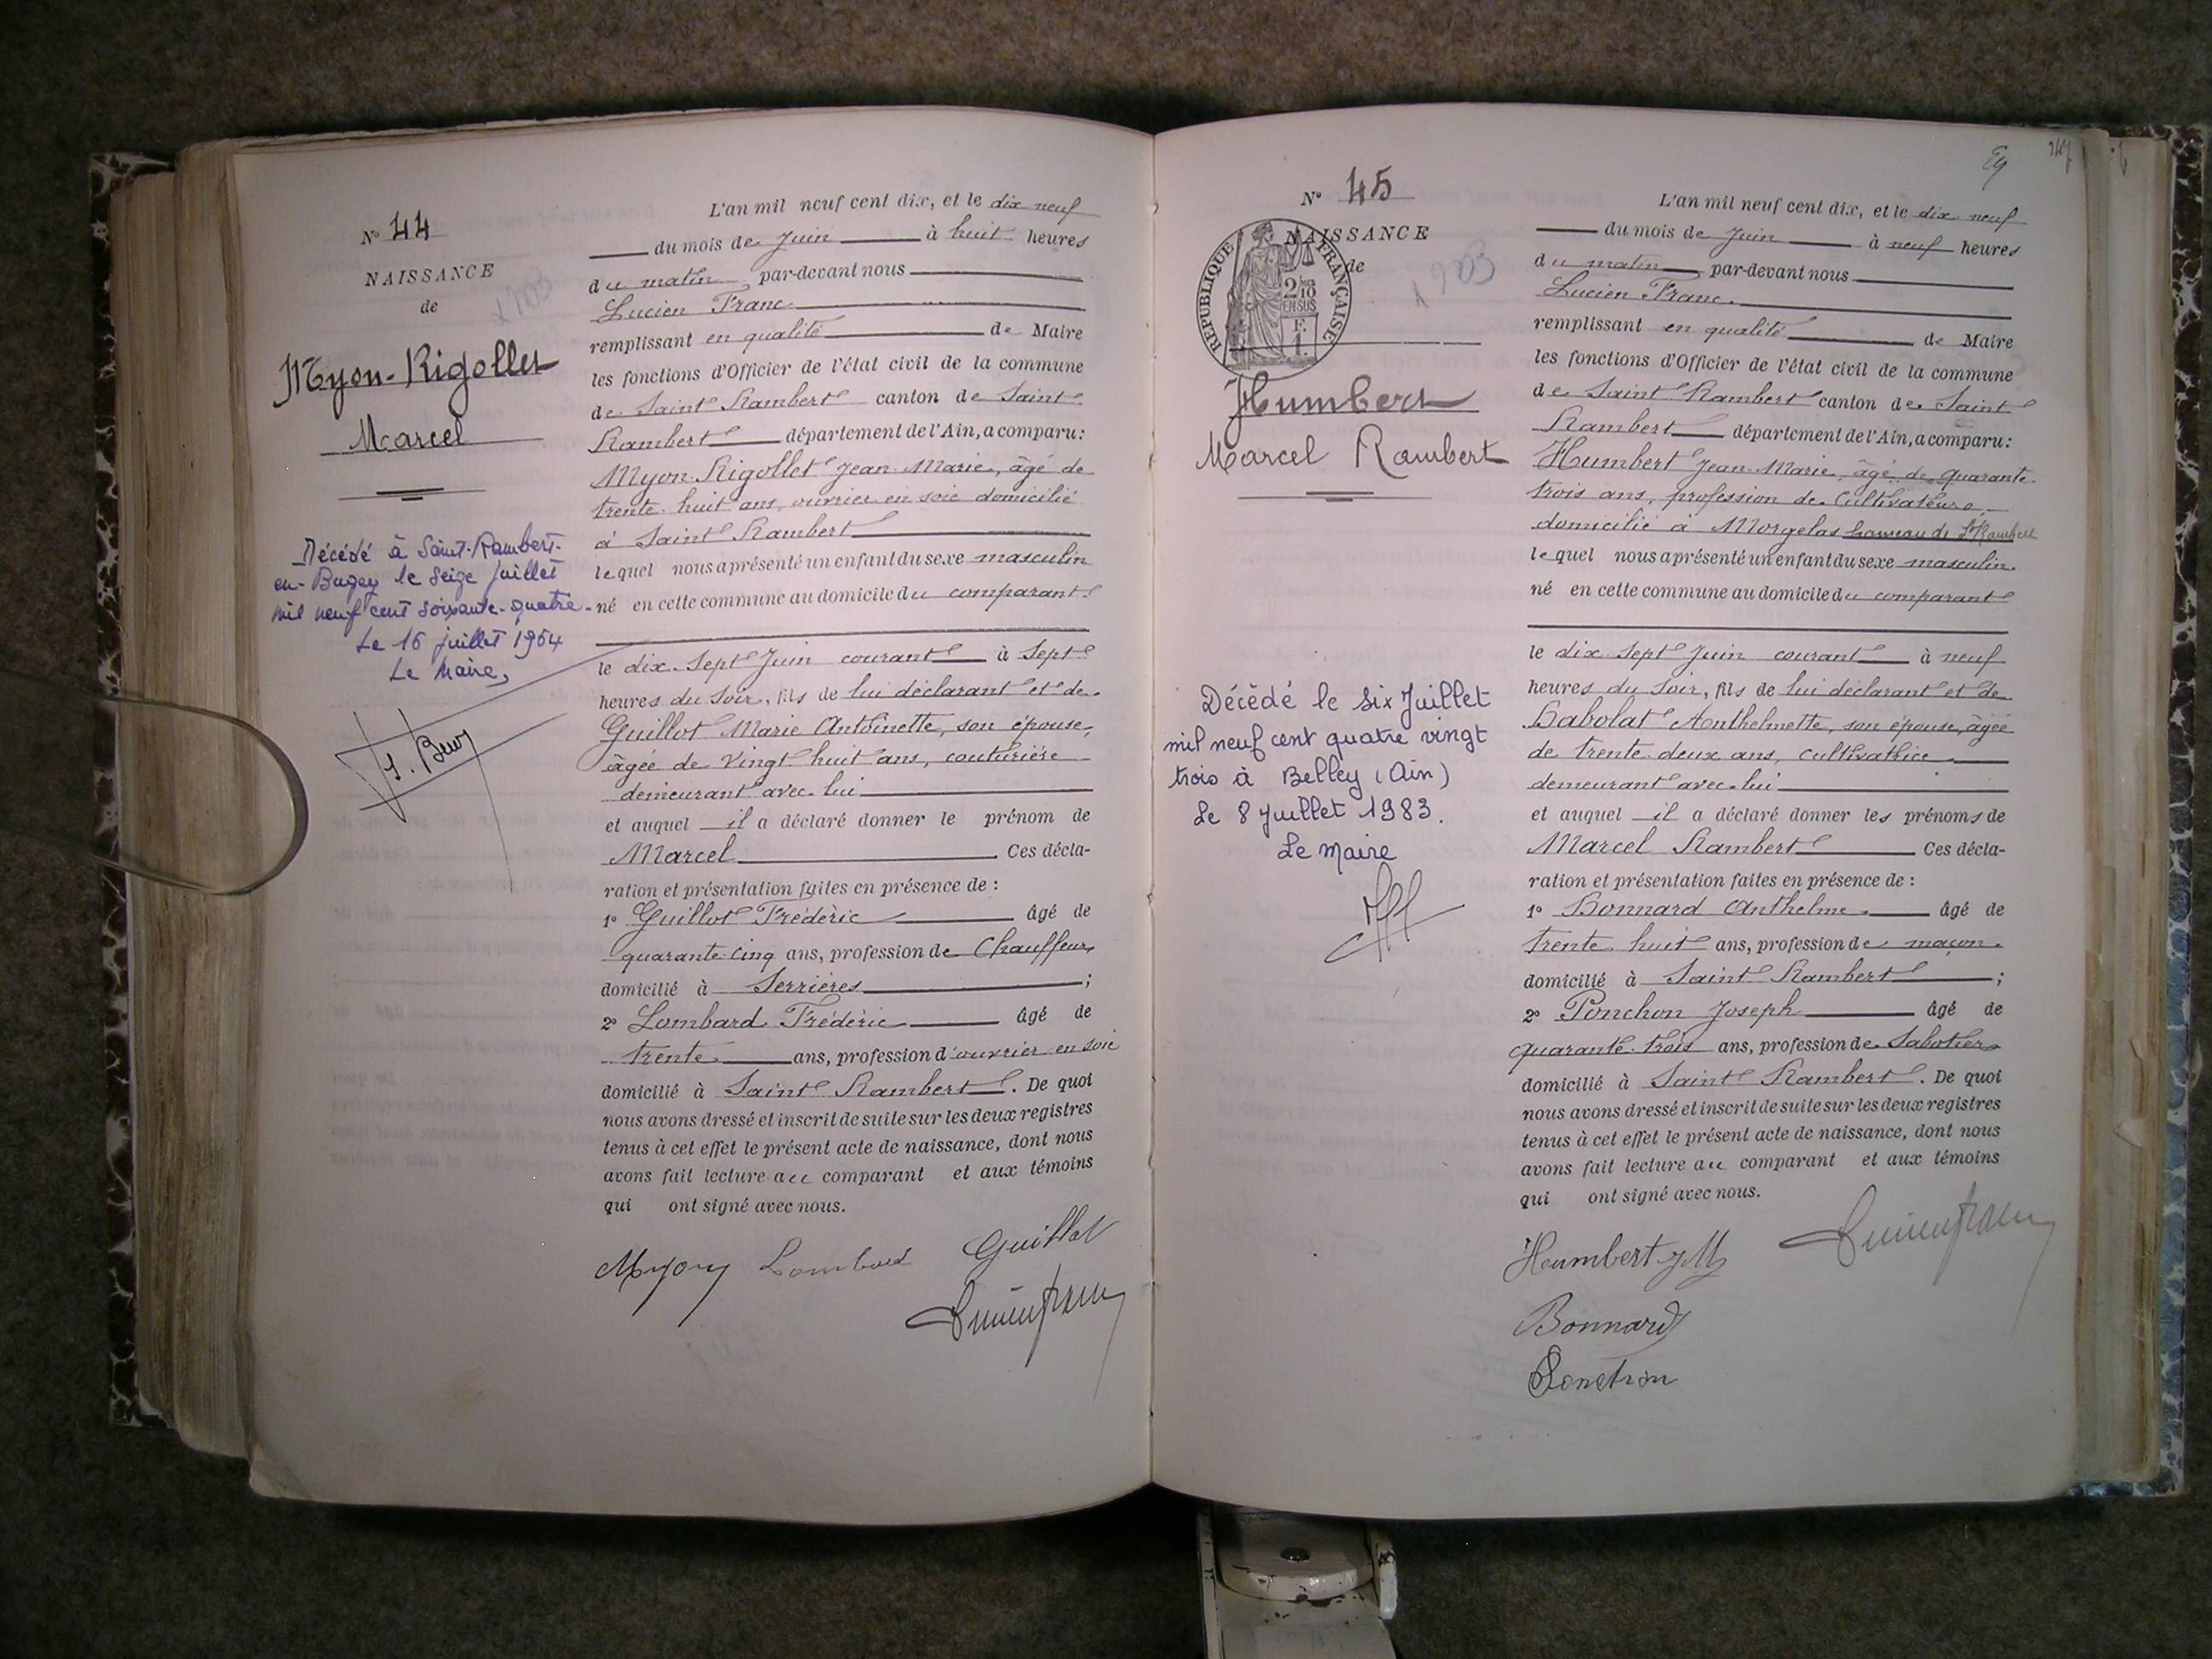 Nº 44
NAISSANCE
de
Myon-Rigollet
Marcel
Décédé à Saint-Rambert-
en-Bugey le seize juillet
mil neuf cent soixante-quatre
Le 16 juillet 1964
Le Maire,
L'an mil neuf cent dix, et le dix neuf
du mois de Juin à huit heures
du matin par-devant nous
Lucien Franc
remplissant en qualité de Maire
les fonctions d'Officier de l'état civil de la commune
de Saint Rambert canton de Saint
Rambert département de l'Ain, a comparu:
Myon-Rigollet Jean-Marie, âgé de
trente-huit ans, ouvrier en soie domicilié
à Saint Rambert
lequel nous a présenté un enfant du sexe masculin
né en cette commune au domicile du comparant
le dix-sept Juin courant à Sept
heures du soir, fils de lui déclarant et de
Guillot Marie Antoinette, son épouse,
âgée de vingt-huit ans, couturière
demeurant avec lui
et auquel il a déclaré donner le prénom de
Marcel Ces décla-
ration et présentation faites en présence de :
1º Guillot Frédéric âgé de
quarante-cinq ans, profession de Chauffeur
domicilié à Serrières ;
2º Lombard Frédéric âgé de
trente ans, profession d'ouvrier en soie
domicilié à Saint Rambert. De quoi
nous avons dressé et inscrit de suite sur les deux registres
tenus à cet effet le présent acte de naissance, dont nous
avons fait lecture au comparant et aux témoins
qui ont signé avec nous.
Myon Lombard Guillot
Lucien Franc
Nº 45
NAISSANCE
de
RÉPUBLIQUE FRANÇAISE
2/10
EN SUS
F.
1.
Humbert
Marcel Rambert
Décèdé le six Juillet
mil neuf cent quatre vingt
trois à Belley (Ain)
Le 8 Juillet 1983.
Le Maire
L'an mil neuf cent dix, et le dix-neuf
du mois de Juin à neuf heures
du matin par-devant nous
Lucien Franc
remplissant en qualité de Maire
les fonctions d'Officier de l'état civil de la commune
de Saint Rambert canton de Saint
Rambert département de l'Ain, a comparu:
Humbert Jean-Marie, âgé de quarante-
trois ans, profession de Cultivateur,
domicilié à Morgelas hameau de St Rambert
lequel nous a présenté un enfant du sexe masculin
né en cette commune au domicile du comparant
le dix-sept Juin courant à neuf
heures du soir, fils de lui déclarant et de
Babolat Anthelmette, son épouse, âgée
de trente-deux ans, cultivatrice
demeurant avec lui
et auquel il a déclaré donner les prénoms de
Marcel Rambert Ces décla-
ration et présentation faites en présence de :
1º Bonnard Anthelme âgé de
trente huit ans, profession de maçon
domicilié à Saint Rambert ;
2º Ponchon Joseph âgé de
quarante-trois ans, profession de Sabotier
domicilié à Saint Rambert. De quoi
nous avons dressé et inscrit de suite sur les deux registres
tenus à cet effet le présent acte de naissance, dont nous
avons fait lecture au comparant et aux témoins
qui ont signé avec nous.
Humbert JM Lucien Franc
Bonnard
Ponchon